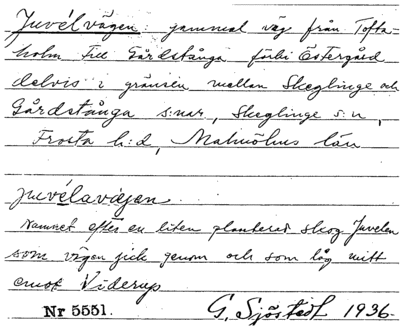 Juvélvägen: gammal väg från Tofta-
holm till Gårdstånga förbi Östergård
delvis i gränsen mellan Skeglinge och
Gårdstånga s:nar, Skeglinge s:n,
Frosta h:d, Malmöhus län
juvélavägen
namnet efter en liten planterad skog Juvelen
som vägen gick genom och som låg mitt
emot Viderup
Nr 5551. G. Sjöstedt 1936.